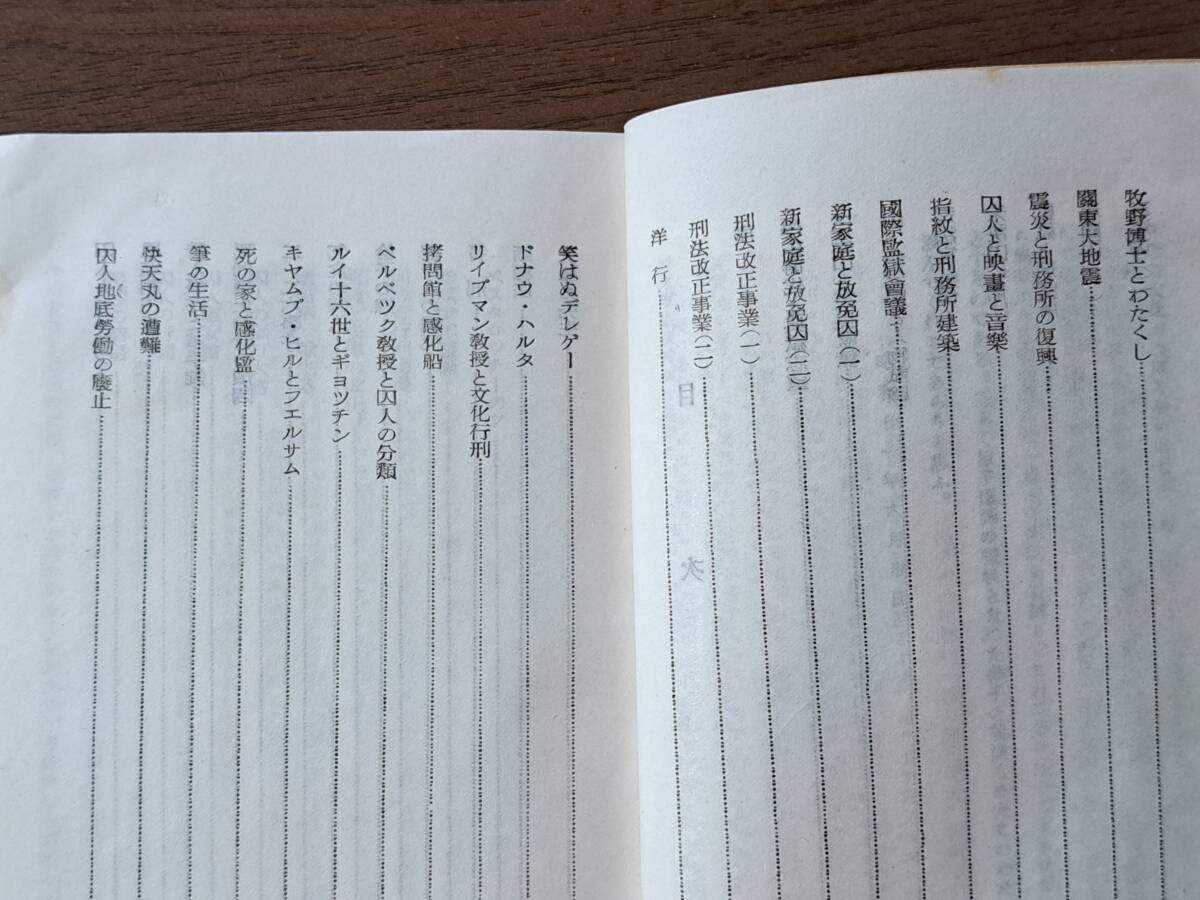 牧野博士とわたくし
關東大地震
震災と刑務所の復興
囚人と映畫と音樂
指紋と刑務所建築
國際監獄會議
新家庭と放免囚(一)
新家庭と放免囚(二)
刑法改正事業(一)
刑法改正事業(二)
洋行
笑はぬデレゲー
ドナウ・ハルタ
リイプマン敎授と文化行刑
拷問館と感化船
ベルベツク敎授と囚人の分類
ルイ十六世とギヨツチン
キヤムプ・ヒルとフエルサム
死の家と感化監
筆の生活
快天丸の遭難
囚人地底勞働の廢止